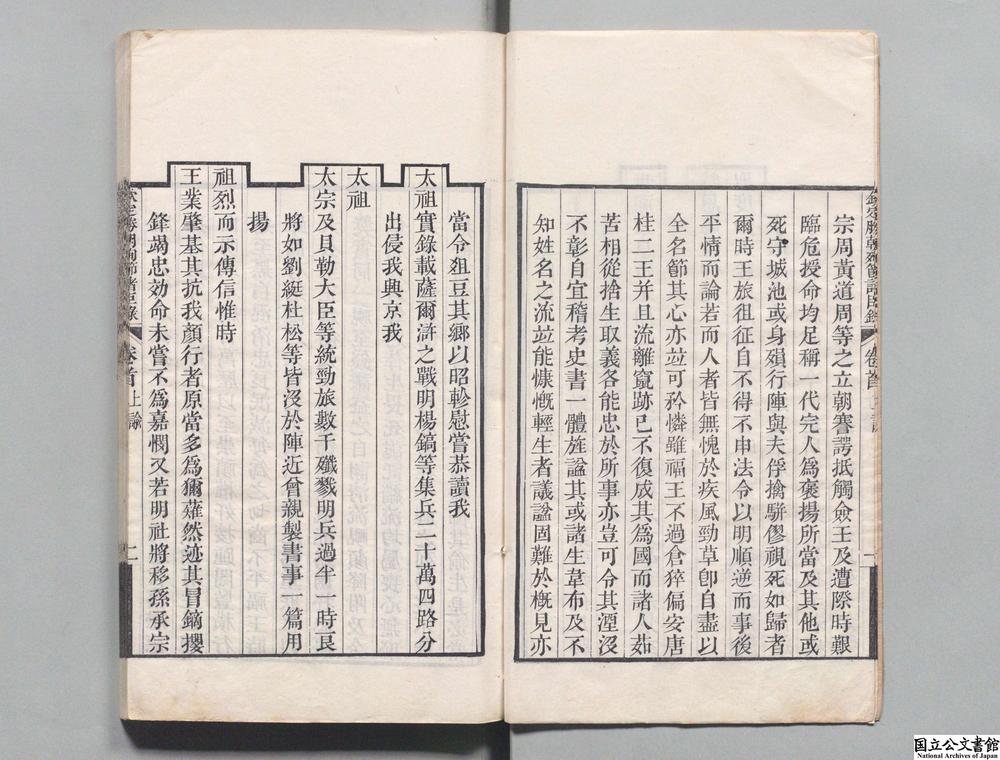 宗周黃道周等之立朝謇諤抵觸僉壬及遭際時艱
臨危授命均足稱一代完人爲褒揚所當及其他或
死守城池或身殞行陣與夫俘擒駢僇視死如歸者
爾時王旅徂征自不得不申法令以明順逆而事後
平情而論若而人者皆無愧於疾風勁草卽自盡以
全名節其心亦竝可矜憐雖福王不過倉猝偏安唐
桂二王并且流離竄跡已不復成其爲國而諸人茹
苦相從捨生取義各能忠於所事亦豈可令其湮沒
不彰自宜稽考史書一體旌諡其或諸生韋布及不
知姓名之流竝能慷慨輕生者議諡固難於槪見亦
欽定勝朝殉節諸臣錄
卷首上諭
一
當令俎豆其鄉以昭軫慰嘗恭讀我
太祖實錄載薩爾滸之戰明楊鎬等集兵二十萬四路分
出侵我興京我
太祖
太宗及貝勒大臣等統勁旅數千殲戮明兵過半一時良
將如劉綎杜松等皆沒於陣近曾親製書事一篇用
揚
祖烈而示傳信惟時
王業肇基其抗我顏行者原當多爲爾薙然迹其冒鏑攖
鋒竭忠効命未嘗不爲嘉憫又若明社將移孫承宗
欽定勝朝殉節諸臣錄
卷首上諭
二
国立公文書館
National Archives of Japan